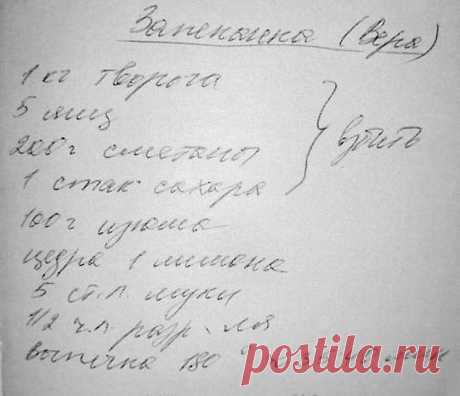 Запеканка (Вера)
1 кг творога
5 яиц
200 г сметаны
1 стак сахара
взбить
100 г изюма
цедра 1 лимона
5 ст.л. муки
1/2 ч.л. разр-ля
выпечка 180°
postila.ru